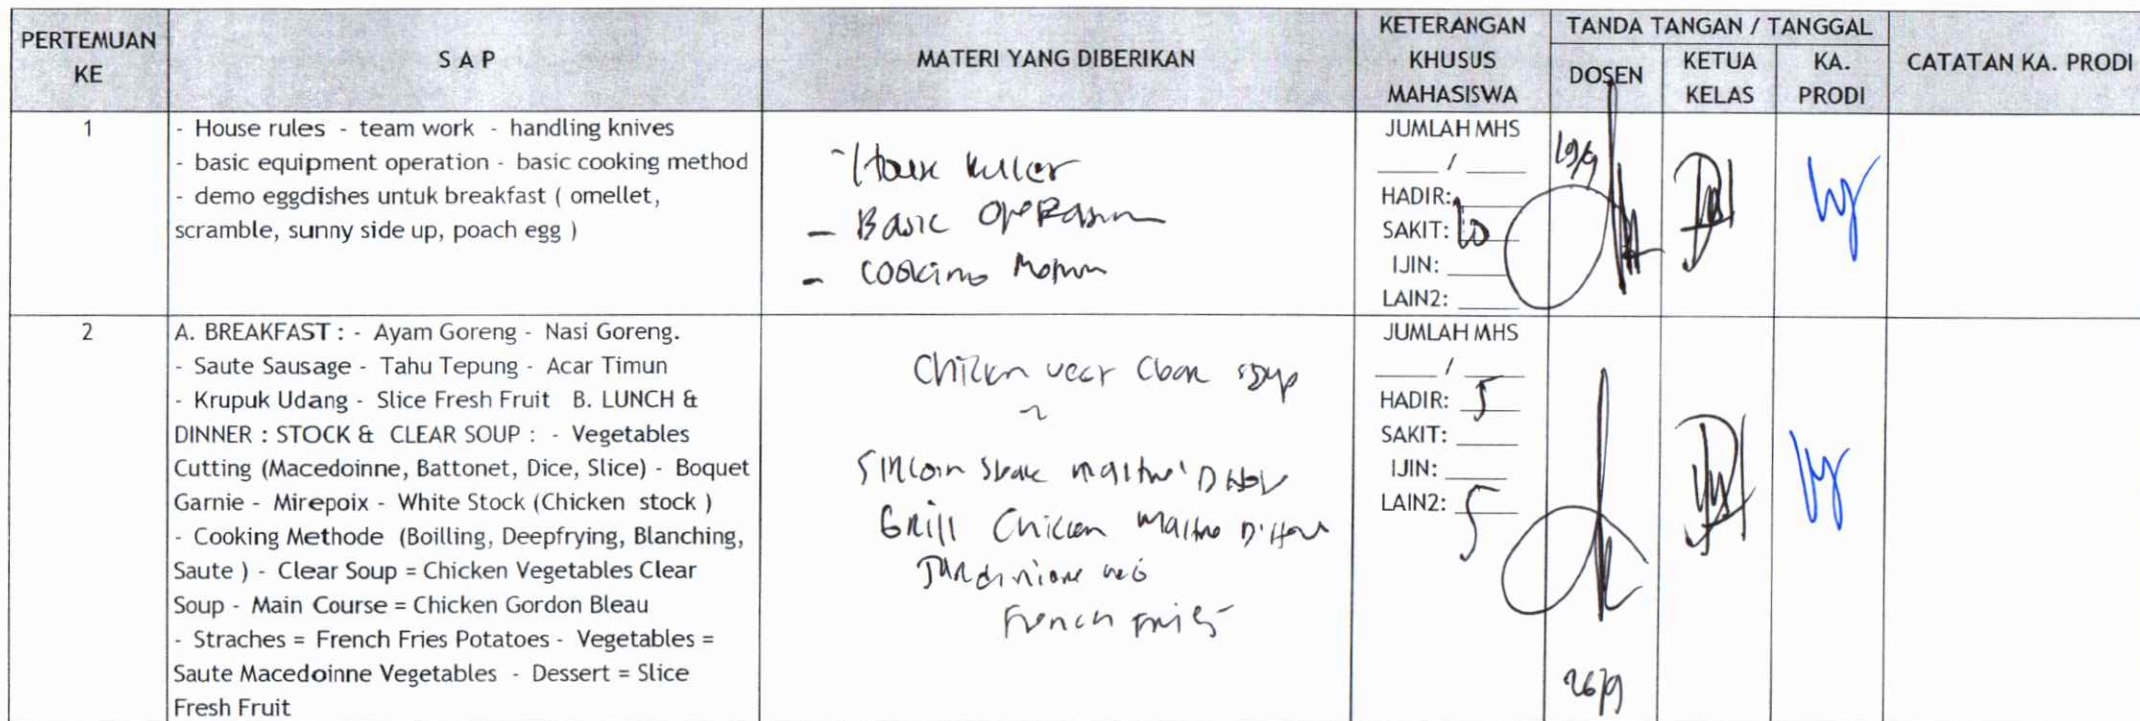 PERTEMUAN KE
S A P
MATERI YANG DIBERIKAN
KETERANGAN KHUSUS MAHASISWA
TANDA TANGAN / TANGGAL
DOSEN
KETUA KELAS
KA. PRODI
CATATAN KA. PRODI
1
- House rules - team work - handling knives
- basic equipment operation - basic cooking method
- demo eggdishes untuk breakfast ( omellet,
scramble, sunny side up, poach egg )
- House
- Basic
- Cooking
JUMLAH MHS
____ / ____
HADIR:
SAKIT:
IJIN:
LAIN2:
19/9
2
A. BREAKFAST : - Ayam Goreng - Nasi Goreng.
- Saute Sausage - Tahu Tepung - Acar Timun
- Krupuk Udang - Slice Fresh Fruit B. LUNCH &
DINNER : STOCK & CLEAR SOUP : - Vegetables
Cutting (Macedoinne, Battonet, Dice, Slice) - Boquet
Garnie - Mirepoix - White Stock (Chicken stock )
- Cooking Methode (Boilling, Deepfrying, Blanching,
Saute ) - Clear Soup = Chicken Vegetables Clear
Soup - Main Course = Chicken Gordon Bleau
- Straches = French Fries Potatoes - Vegetables =
Saute Macedoinne Vegetables - Dessert = Slice
Fresh Fruit
Chicken soup
Grill Chicken
French Fries
JUMLAH MHS
____ / ____
HADIR: 5
SAKIT:
IJIN:
LAIN2: 5
26/9